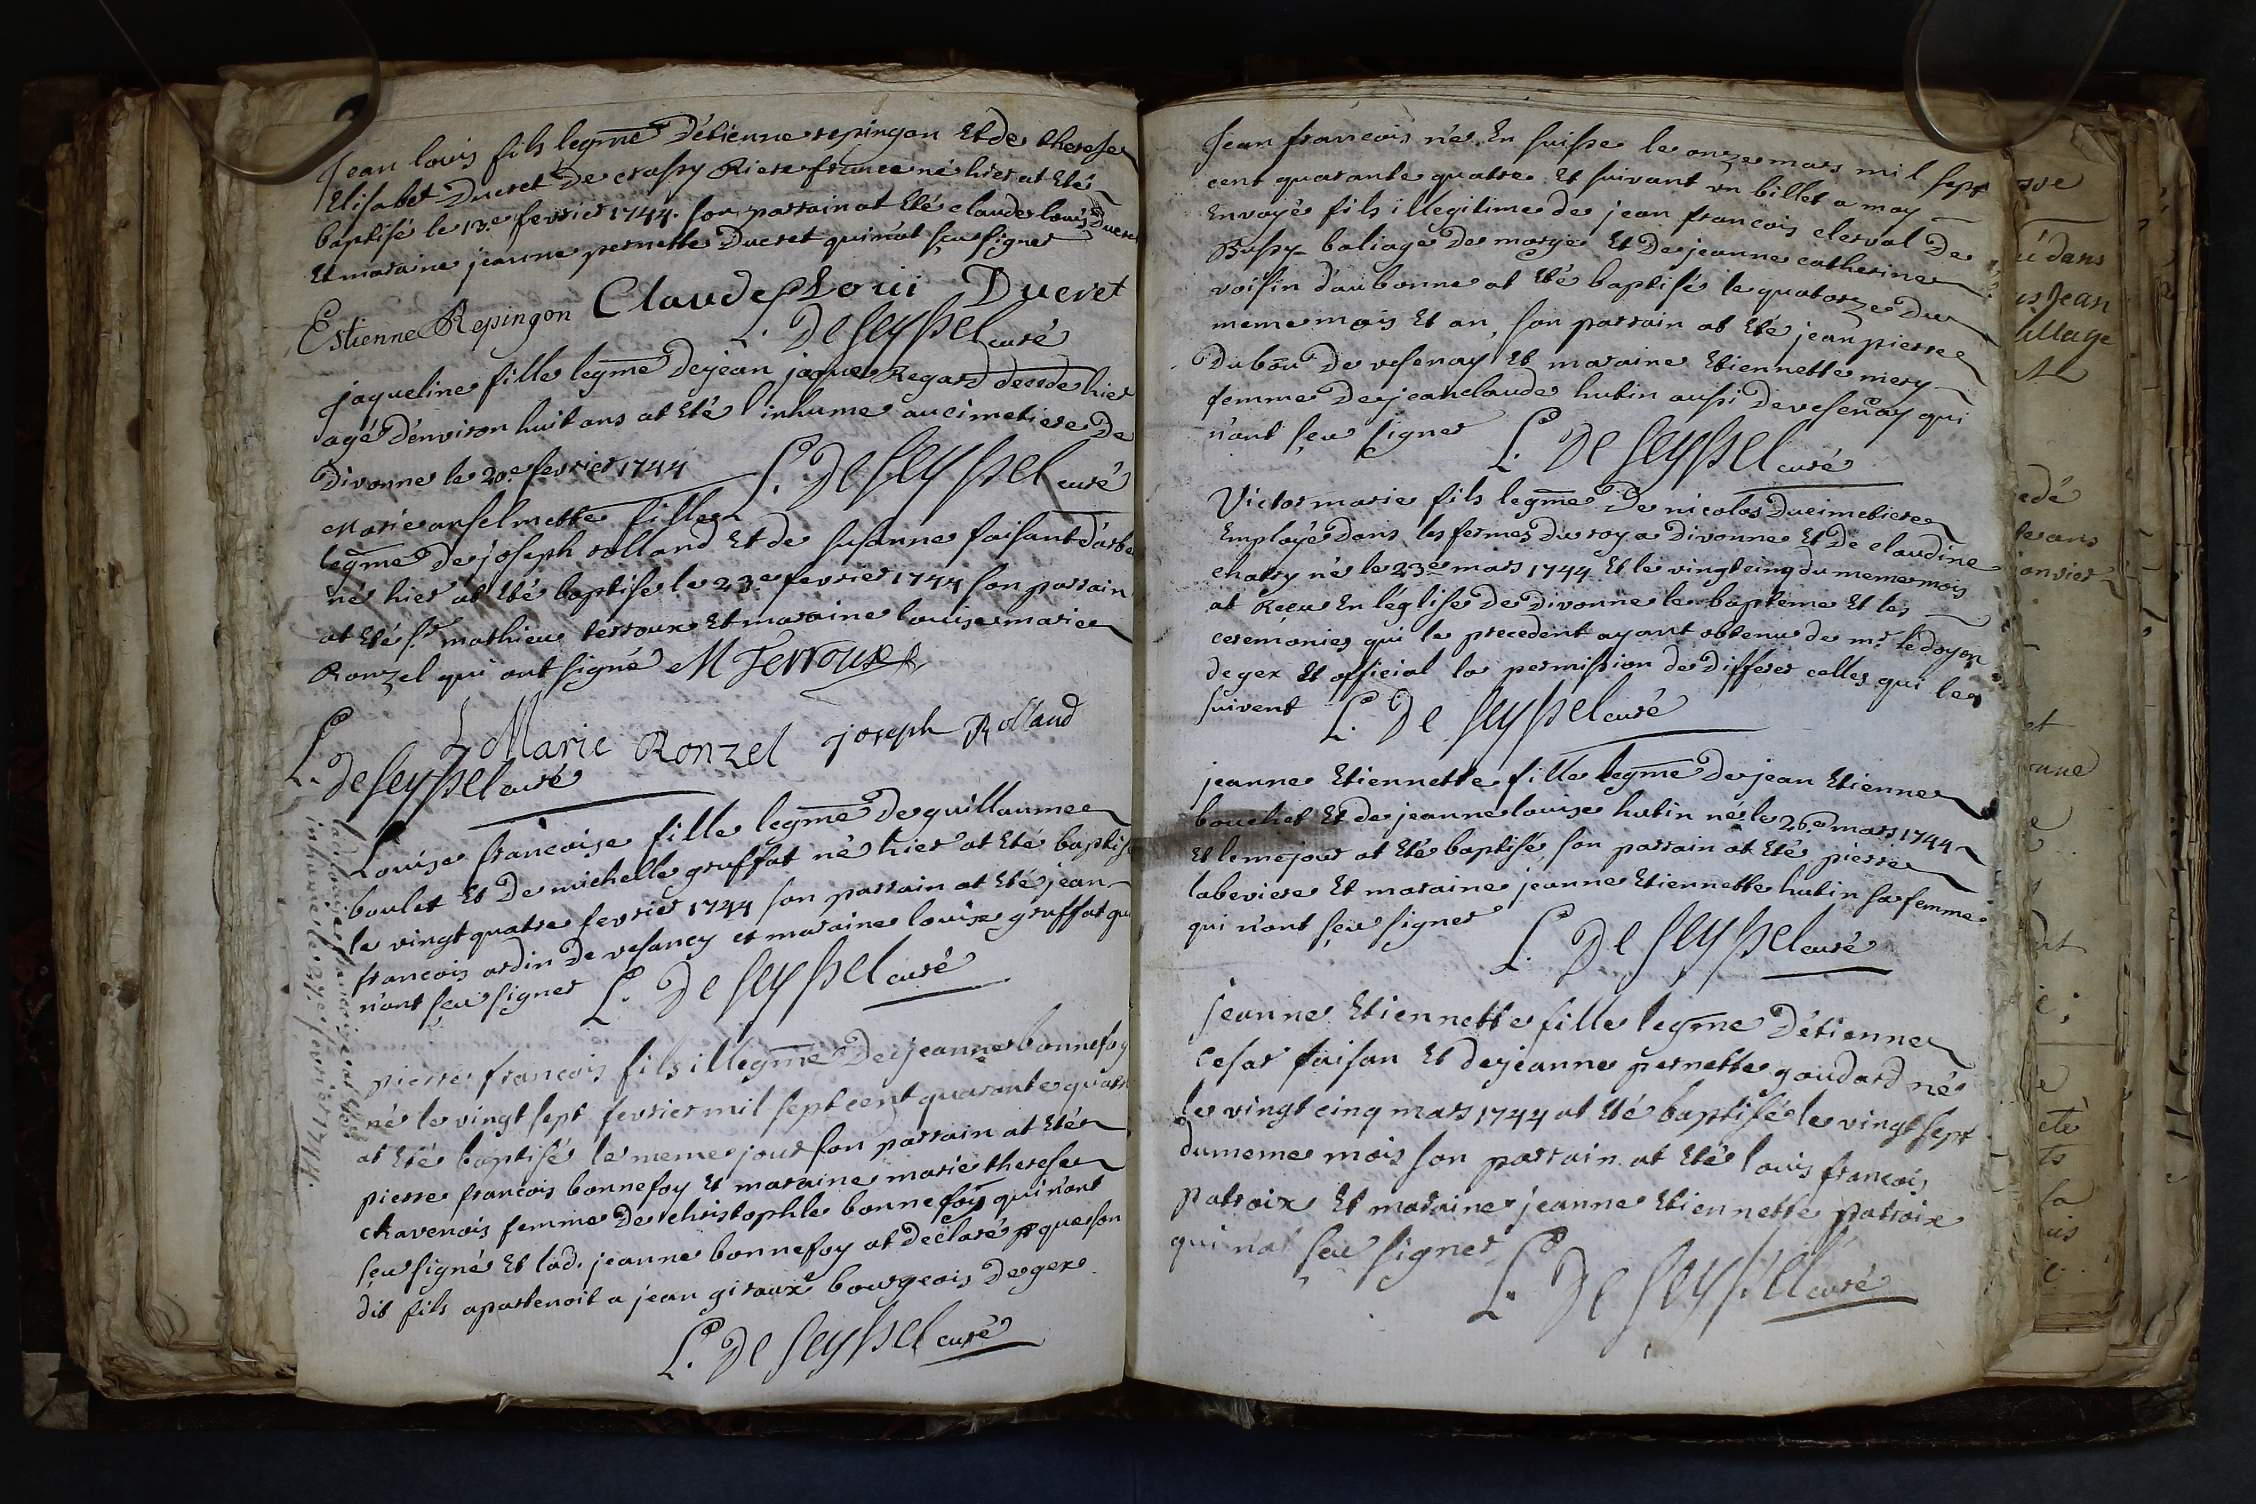 Jean louis fils legme d'étienne repingon Et de therese
Elisabet Ducret De crassy Riere france né hier at Eté
baptisé le 13.e fevrier 1744. son parrain at Eté claude louis Ducret
Et maraine jeanne pernette Ducret qui n'at sçu signer
Estienne Repingon Claude Loui Ducret
L. De Seyssel curé
jaqueline fille legme de jean jaque Regard decede hier
agé d'environ huit ans at Eté inhume au cimetiere De
Divonne le 20.e fevrier 1744 L. De Seyssel curé
Marie anselmette fille
legme de joseph rolland Et de susanne faisant d'arbe
né hier at Eté baptise le 23.e fevrier 1744 son parrain
at Eté sr. mathieu terroux Et maraine louise marie
Ronzel qui ont signé M Terroux
L Marie Ronzel joseph Rolland
L. De Seyssel curé
Louise francoise fille legme de guillaume
boulet Et De michelle gruffat né hier at Eté baptisé
le vingt quatre fevrier 1744 son parrain at Eté jean
francois ardin De vesancy et maraine louise gruffat qui
n'ont sçu signer L. De Seyssel curé
ladt louise francoise at Eté
inhumé le 27.e fevrier 1744.
pierre francois fils illegme De jeanne bonnefoy
né le vingt sept fevrier mil sept cent quarante quatre
at Eté baptisé le meme jour son parrain at Eté
pierre francois bonnefoy Et maraine marie therese
chavenois femme De christophle bonnefoy qui n'ont
sçu signé Et lad. jeanne bonnefoy at declaré que son
dit fils apartenoit a jean giraux bourgeois de gex
L. De Seyssel curé
Jean francois né En suisse le onze mars mil sept
cent quarante quatre Et suivant un billet a moy
Envoyé fils illegitime de jean francois clerval De
Bussy baliage de morge Et De jeanne catherine
voisin d'aubonne at Eté baptisé le quatorze Du
meme mois Et an, son parrain at Eté jean pierre
Dubou De vesenay Et maraine Etiennette mery
femme De jean claude hutin aussi De vesenay qui
n'ont sçu signer L. De Seyssel curé
Victor marie fils legme De nicolas Ducimetiere
Employé Dans les fermes Du roy a Divonne Et De claudine
chatry né le 23e mars 1744 Et le vingt cinq du meme mois
at Reçu En l'église De Divonne le bapteme Et les
ceremonies qui le precedent ayant obtenu de mr. le doyen
de gex Et official la permission de Differer celles qui les
suivent L. De Seyssel curé
jeanne Etiennette fille legme De jean Etienne
bouchet Et de jeanne louise hutin né le 26.e mars 1744
Et le me jour at Eté baptisé, son parrain at Eté pierre
labeviere Et maraine jeanne Etiennette hutin sa femme
qui n'ont sçu signer L. De Seyssel curé
jeanne Etiennette fille legme D'étienne
Cesar faisan Et de jeanne pernette goudard né
le vingt cinq mars 1744 at Eté baptisé le vingt sept
du meme mois son parrain at Eté louis francois
patroix Et maraine jeanne Etiennette patroix
qui n'at sçu signer L. De Seyssel curé